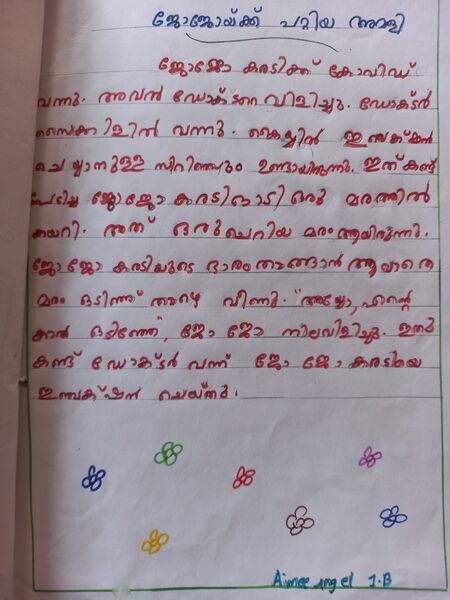 ജോജോയ്ക്ക് പറ്റിയ അമളി
ജോജോ കരടിക്ക് കോവിഡ്
വന്നു. അവൻ ഡോക്ടറെ വിളിച്ചു. ഡോക്ടർ
സൈക്കിളിൽ വന്നു. കൈയ്യിൽ ഇഞ്ചക്ഷൻ
ചെയ്യാനുള്ള സിറിഞ്ചും ഉണ്ടായിരുന്നു. ഇത് കണ്ട്
പേടിച്ച ജോജോ കരടി ഓടി ഒരു മരത്തിൽ
കയറി. അത് ഒരു ചെറിയ മരം ആയിരുന്നു.
ജോജോ കരടിയുടെ ഭാരം താങ്ങാൻ ആവാതെ
മരം ഒടിഞ്ഞ് താഴെ വീണു. "അയ്യോ, എന്റെ
കാൽ ഒടിഞ്ഞേ", ജോ ജോ നിലവിളിച്ചു. ഇതു
കണ്ട് ഡോക്ടർ വന്ന് ജോ ജോ കരടിയെ
ഇഞ്ചക്ഷൻ ചെയ്തു.
Aimee Angel 1.B